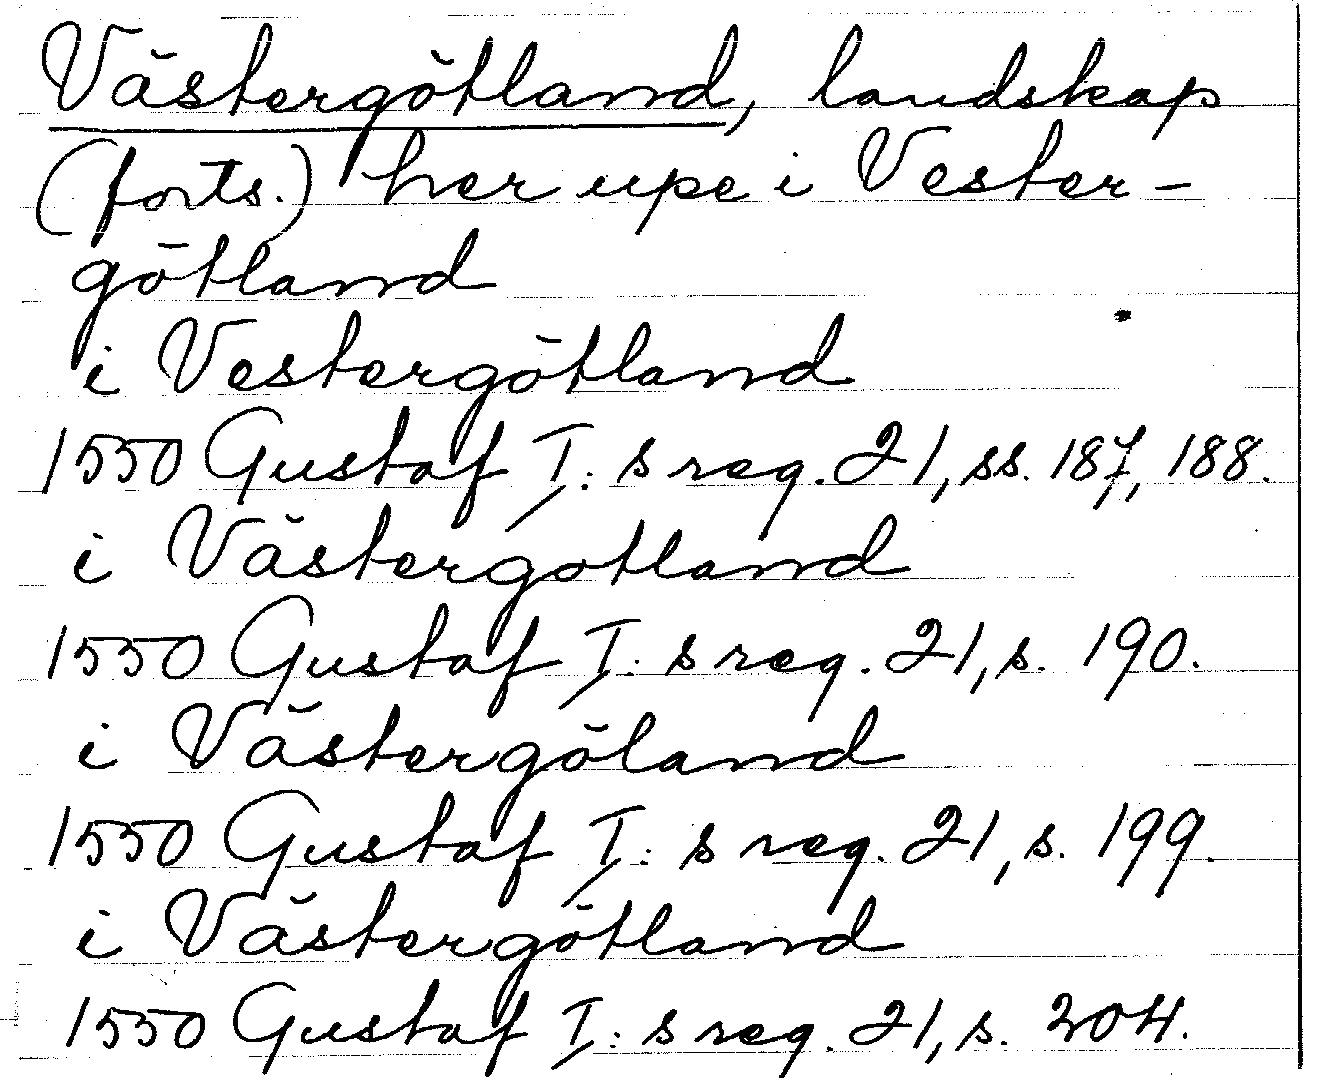 Västergötland, landskap
(forts.) her upe i Vester-
götland
i Vestergötland
1550 Gustaf I: s reg. 21, ss. 187, 188.
i Västergotland
1550 Gustaf I: s reg. 21, s. 190.
i Västergöland
1550 Gustaf I: s reg. 21, s. 199.
i Västergötland
1550 Gustaf I: s reg. 21, s. 204.